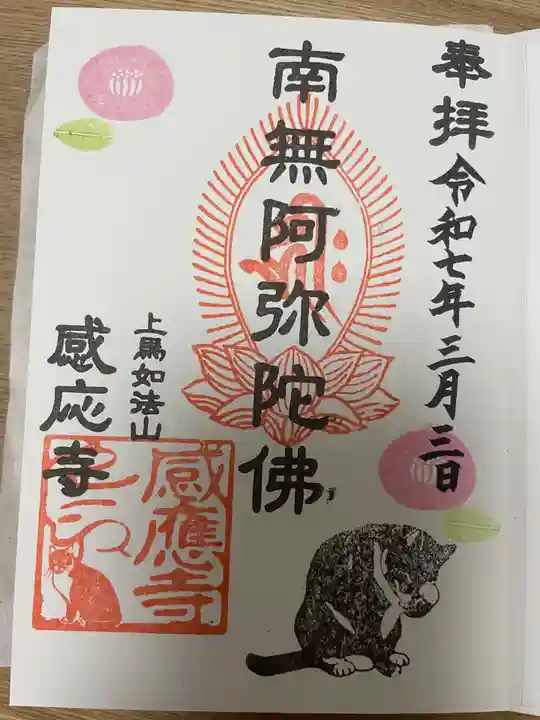 奉拝令和七年三月三日
南無阿弥陀佛
上馬如法山
感応寺
感應寺